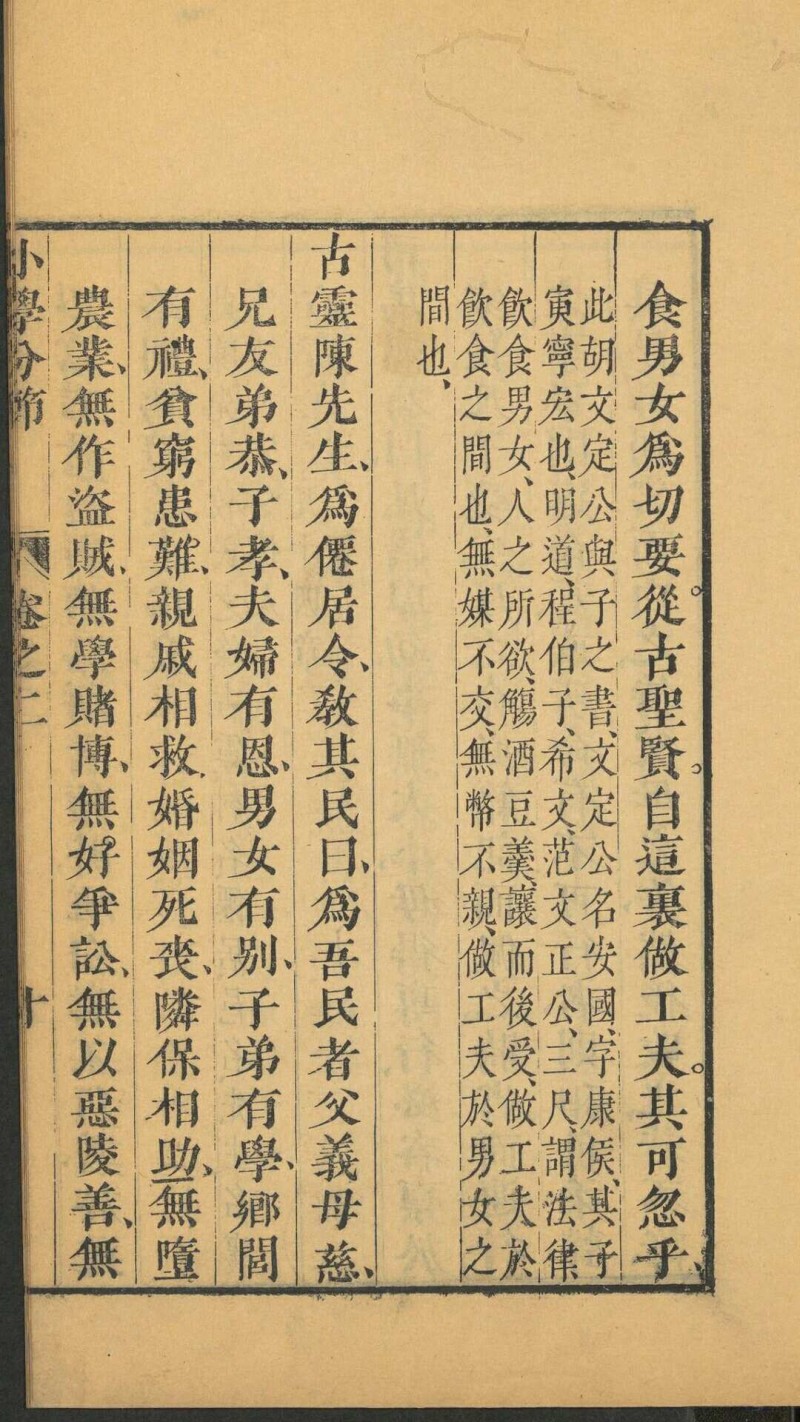 食男女爲切要。從古聖賢。自這裏做工夫。其可忽乎、
此胡文定公與子之書、文定公名安國、字康侯、其子
寅寧宏也、明道、程伯子、希文、范文正公、三尺、謂法律、
飮食男女、人之所欲、觴酒豆羹、讓而後受、做工夫於
飮食之間也、無媒不交、無幣不親、做工夫於男女之
間也、
古靈陳先生、爲僊居令、敎其民曰、爲吾民者父義母慈、
兄友弟恭、子孝、夫婦有恩、男女有別、子弟有學、鄕閭
有禮、貧窮患難、親戚相救、婚姻死喪、隣保相助、無墮
農業、無作盜賊、無學賭博、無好爭訟、無以惡陵善、無
小學分節 卷之二 十